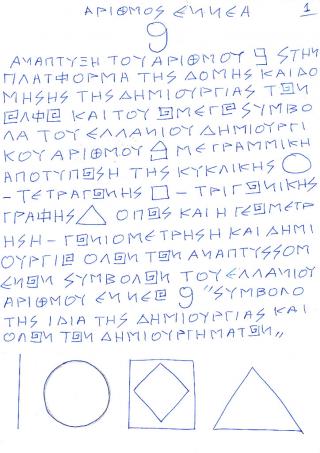 ΑΡΙΘΜΟΣ ΕΝΝΕΑ 1
9
ΑΝΑΠΤΥΞΗ ΤΟΥ ΑΡΙΘΜΟΥ 9 ΣΤΗΝ
ΠΛΑΤΦΟΡΜΑ ΤΗΣ ΔΟΜΗΣ ΚΑΙ ΔΟ
ΜΗΣΗΣ ΤΗΣ ΔΗΜΙΟΥΡΓΙΑΣ ΤΩΝ
ΑΛΦΑ ΚΑΙ ΤΟΥ ΩΜΕΓΑ ΣΥΜΒΟ
ΛΑ ΤΟΥ ΕΛΛΑΝΙΟΥ ΔΗΜΙΟΥΡΓΙ
ΚΟΥ ΑΡΙΘΜΟΥ ΜΕ ΓΡΑΜΜΙΚΗ
ΑΠΟΤΥΠΩΣΗ ΤΗΣ ΚΥΚΛΙΚΗΣ
– ΤΕΤΡΑΓΩΝΗΣ – ΤΡΙΓΩΝΙΚΗΣ
ΓΡΑΦΗΣ ΟΠΩΣ ΚΑΙ Η ΓΕΩΜΕΤΡ
ΗΣΗ – ΓΩΝΙΟΜΕΤΡΗΣΗ ΚΑΙ ΔΗΜΙ
ΟΥΡΓΙΑ ΟΛΩΝ ΤΩΝ ΑΝΑΠΤΥΣΣΟΜ
ΕΝΩΝ ΣΥΜΒΟΛΩΝ ΤΟΥ ΕΛΛΑΝΙΟΥ
ΑΡΙΘΜΟΥ ΕΝΝΕΑ 9 "ΣΥΜΒΟΛΟ
ΤΗΣ ΙΔΙΑ ΤΗΣ ΔΗΜΙΟΥΡΓΙΑΣ ΚΑΙ
ΟΛΩΝ ΤΩΝ ΔΗΜΙΟΥΡΓΗΜΑΤΩΝ„